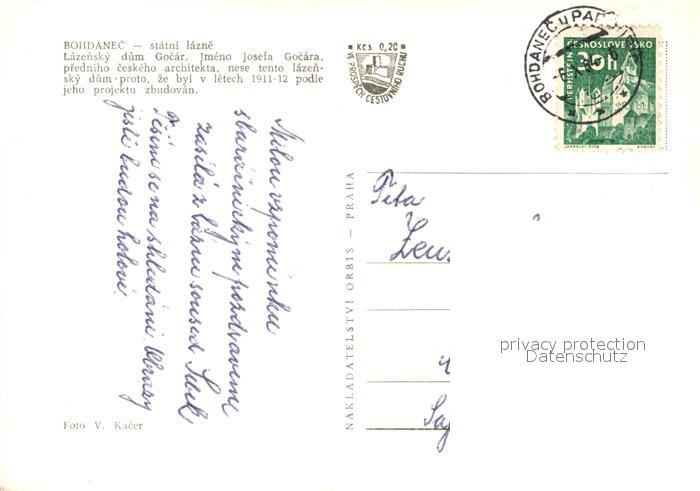 BOHDANEČ — státní lázně
Lázeňský dům Gočár. Jméno Josefa Gočára,
předního českého architekta, nese tento lázeň-
ský dům proto, že byl v létech 1911-12 podle
jeho projektu zbudován.
Kčs 0,20
VE PROSPĚCH CESTOVNÍHO RUCHU
BOHDANEČ u PARDUBIC
ČESKOSLOVENSKO
PERNŠTEJN
30h
Milou vzpomínku
s baráčnickým pozdravem
zasílá z lázní soused Sívek
Těším se na shledání. Obrazy
jistě budou hotové.
NAKLADATELSTVÍ ORBIS — PRAHA
Péťa
Sag
privacy protection
Datenschutz
Foto V. Kačer